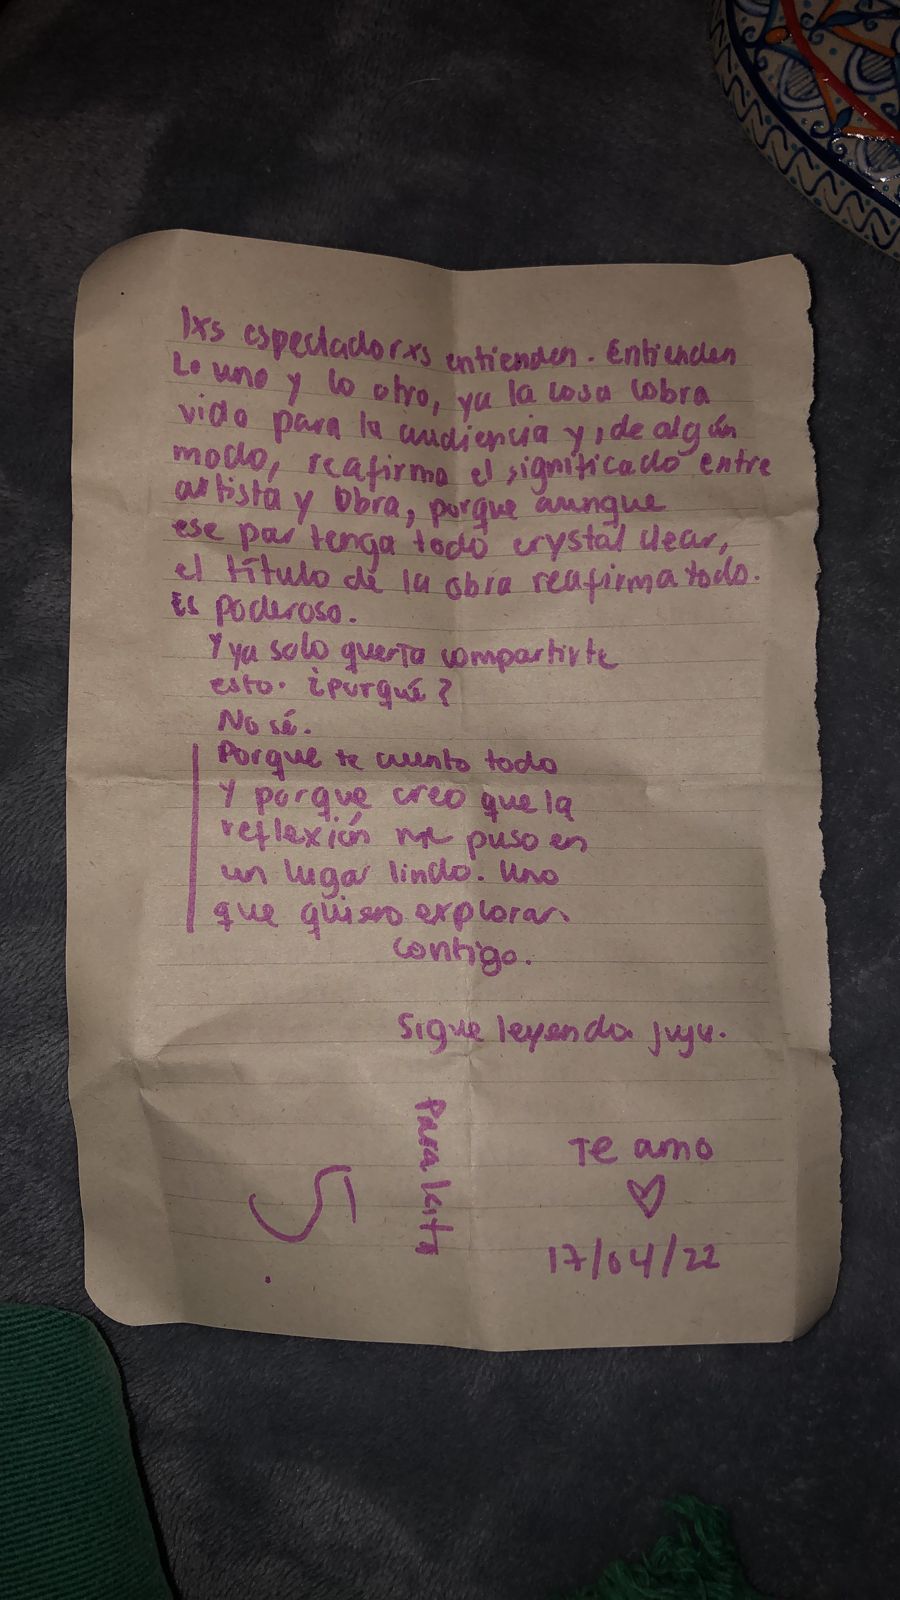 lxs espectadorxs entienden. Entienden
Lo uno y lo otro, ya la cosa cobra
vida para la audiencia y, de algún
modo, reafirma el significado entre
artista y obra, porque aunque
ese par tenga todo crystal clear,
el título de la obra reafirma todo.
Es poderoso.
Y ya solo quería compartirte
esto. ¿Porqué?
No sé.
Porque te cuento todo
Y porque creo que la
reflexión me puso en
un lugar lindo. Uno
que quiero explorar
contigo.
Sigue leyendo juju.
Para kita
Te amo
17/04/22